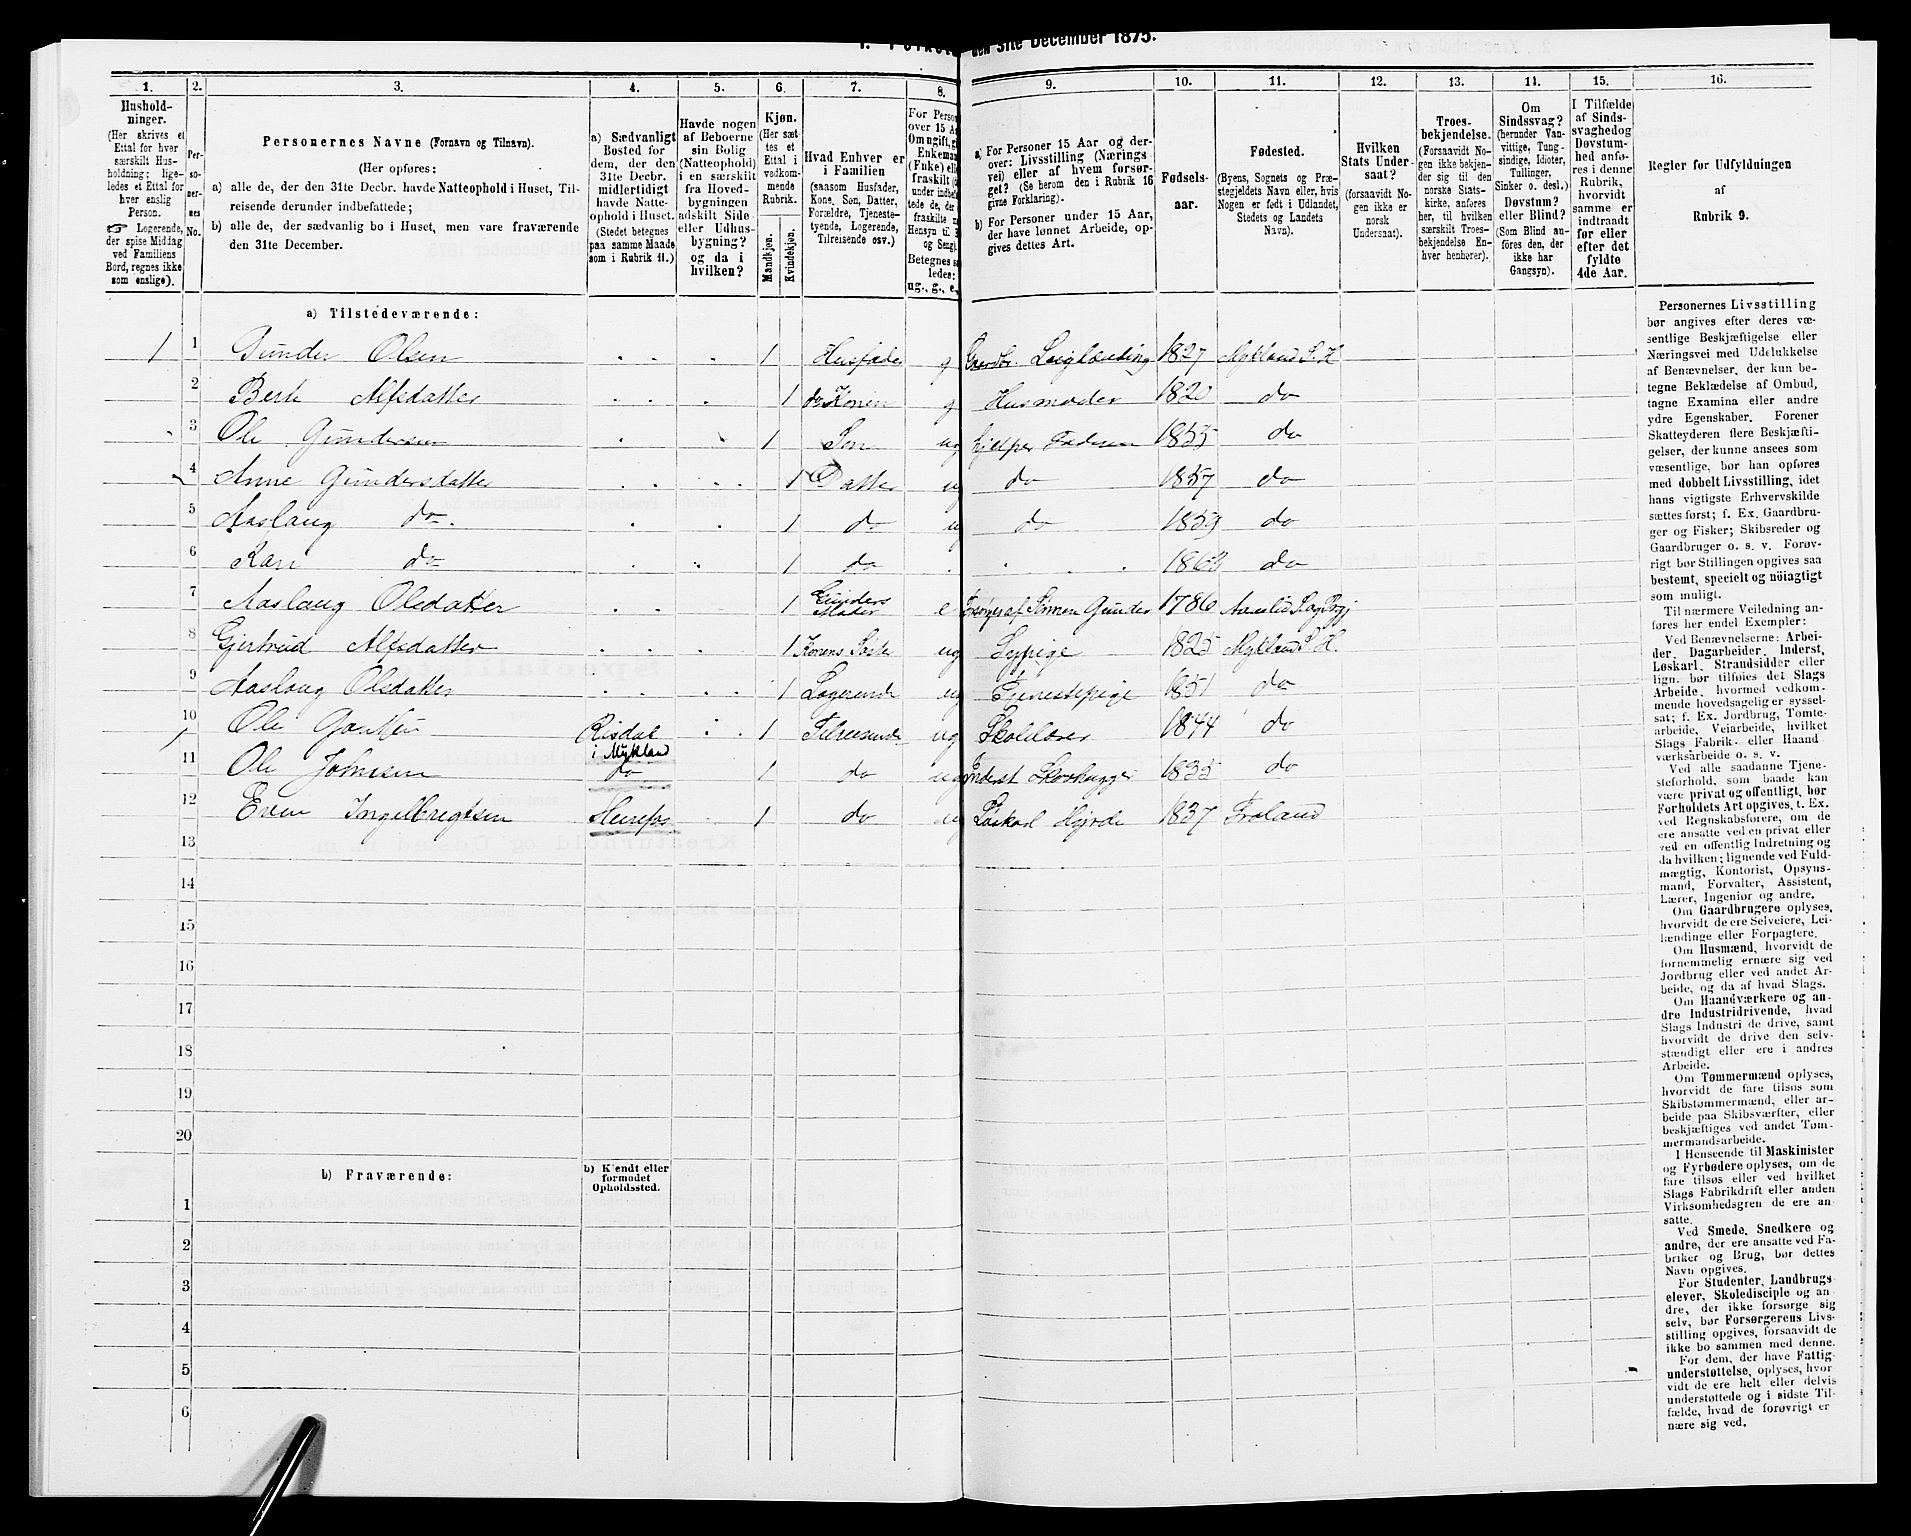 den 31te December 1875.
1. 2. 3. 4. 5. 6. 7. 8. 9. 10. 11. 12. 13. 14. 15. 16.
Hushold-
ninger.
(Her skrives et
Ettal for hver
særskilt Hus-
holdning; lige-
ledes et Ettal for
hver enslig
Person.
☞ Logerende,
der spise Middag
ved Familiens
Bord, regnes ikke
som enslige).
Per-
so-
ner-
nes
No.
Personernes Navne (Fornavn og Tilnavn).
(Her opføres:
a) alle de, der den 31te Decbr. havde Natteophold i Huset, Til-
reisende derunder indbefattede;
b) alle de, der sædvanlig bo i Huset, men vare fraværende
den 31te December.
a) Sædvanligt
Bosted for
dem, der den
31te Decbr.
midlertidigt
havde Natte-
ophold i Huset.
(Stedet betegnes
paa samme Maade
som i Rubrik 11.)
Havde nogen
af Beboerne
sin Bolig
(Natteophold)
i en særskilt
fra Hoved-
bygningen
adskilt Side-
eller Udhus-
bygning?
og da i
hvilken?
Kjøn.
(Her sæt-
tes et
Ettal i
vedkom-
mende
Rubrik.
Mandkjøn.
Kvindekjøn.
Hvad Enhver er
i Familien
(saasom Husfader,
Kone, Søn, Datter,
Forældre, Tjeneste-
tyende, Logerende,
Tilreisende osv.)
For Person
over 15 A
Om ugift, g
Enkeman
(Fuke) el
fraskilt
ug., g., e.,
a) For Personer 15 Aar og der-
over: Livsstilling (Nærings
vei) eller af hvem forsør-
get? (Se herom den i Rubrik 16
givne Forklaring).
b) For Personer under 15 Aar,
der have lønnet Arbeide, op-
gives dettes Art.
Fødsels-
aar.
Fødested.
(Byens, Sognets og Præ-
stegjeldets Navn eller, hvis
Nogen er født i Udlandet,
Stedets og Landets
Navn).
Hvilken
Stats Under-
saat?
(forsaavidt No-
gen ikke er
norsk
Undersaat).
Troes-
bekjendelse.
(Forsaavidt No-
gen ikke bekjen-
der sig til den
norske Stats-
kirke, anføres
her, til hvilken
særskilt Troes-
bekjendelse En-
hver henhører).
Om
Sindssvag?
(herunder Van-
vittige, Tung-
sindige, Idioter,
Tullinger,
Sinker o. desl.)
Døvstum?
eller Blind?
(Som Blind an-
føres den, der
ikke har
Gangsyn).
I Tilfælde
af Sinds-
svaghedog
Døvstum-
hed anfø-
res i denne
Rubrik,
hvorvidt
samme er
indtraadt
før eller
efter det
fyldte
4de Aar.
Regler for Udfyldningen
af
Rubrik 9.
a) Tilstedeværende:
1 1 Gunder Olsen 1 Husfader g Gaardbr. Leiglænding 1827 Mykland S. H
2 Berte Alfsdatter 1 do Konen g Husmoder 1820 do
3 Ole Gundersen 1 Søn ug hjelper Faderen 1855 do
4 Anne Gundersdatter 1 Datter ug do 1857 do
5 Aaslaug do 1 do ug do 1859 do
6 Kari do 1 do 1863 do
7 Aaslaug Olsdatter 1 Gunders Moder e Forsørges af Sønnen Gunder 1786
8 Gjertrud Alfsdatter 1 Konens Søster ug Sypige 1825 Mykland S. H.
9 Aaslaug Olsdatter 1 Logerende ug Tjenestepige 1851 do
10 Ole Risdal i Mykland 1 Tilreisende ug Skolelærer 1844 do
11 Ole Johnsen do 1 do ug Inderst Skovhugger 1835 do
12 Even Ingelbregtsen 1 do ug 1837 Froland
13
14
15
16
17
18
19
20
b) Fraværende:
b) Kjendt eller
formodet
Opholdssted.
1
2
3
4
5
6
Personernes Livsstilling
bør angives efter deres væ-
sentlige Beskjæftigelse eller
Næringsvei med Udelukkelse
af Benævnelser, der kun be-
tegne Beklædelse af Ombud,
tagne Examina eller andre
ydre Egenskaber. Forener
Skatteyderen flere Beskjæfti-
gelser, der kunne ansees som
væsentlige, bør han opføres
med dobbelt Livsstilling, idet
hans vigtigste Erhvervskilde
sættes først; f. Ex. Gaardbru-
ger og Fisker; Skibsreder og
Gaardbruger o. s. v. Forøv-
rigt bør Stillingen opgives saa
bestemt, specielt og nöiagtigt
som muligt.
Til nærmere Veiledning an-
føres her endel Exempler:
Ved Benævnelserne: Arbei-
der, Dagarbeider, Inderst,
Løskarl, Strandsidder eller
lign. bør tilføies det Slags
Arbeide, hvormed vedkom-
mende hovedsagelig er syssel-
sat; f. Ex. Jordbrug, Tomte-
arbeide, Veiarbeide, hvilket
Slags Fabrik- eller Haand-
værksarbeide o. s. v.
Ved alle saadanne Tjene-
steforhold, som baade kan
være privat og offentligt, bør
Forholdets Art opgives, t. Ex.
ved Regnskabsførere, om de
ere ansatte ved en privat eller
ved en offentlig Indretning og
da hvilken; lignende ved Fuld-
mægtig, Kontorist, Opsyns-
mand, Forvalter, Assistent,
Lærer, Ingeniør og andre.
Om Gaardbrugere oplyses,
hvorvidt de ere Selveiere, Lei-
lændinge eller Forpagtere.
Om Husmænd, hvorvidt de
fornemmelig ernære sig ved
Jordbrug eller ved andet Ar-
beide, og da af hvad Slags.
Om Haandværkere og an-
dre Industridrivende, hvad
Slags Industri de drive, samt
hvorvidt de drive den selv-
stændigt eller ere i andres
Arbeide.
Om Tømmermænd oplyses,
hvorvidt de fare tilsøs som
Skibstømmermænd, eller ar-
beide paa Skibsværfter, eller
beskjæftiges ved andet Tøm-
mermandsarbeide.
I Henseende til Maskinister
og Fyrbødere oplyses, om de
fare tilsøs eller ved hvilket
Slags Fabrikdrift eller anden
Virksomhedsgren de ere an-
satte.
Ved Smede, Snedkere og
andre, der ere ansatte ved Fa-
briker og Brug, bør dettes
Navn opgives.
For Studenter, Landbrugs-
elever, Skoledisciple og an-
dre, der ikke forsørge sig
selv, bør Forsørgerens Livs-
stilling opgives, forsaavidt de
ikke bo sammen med denne.
For dem, der have Fattig-
understøttelse, oplyses, hvor-
vidt de ere helt eller delvis
understøttede og i sidste Til-
fælde, hvad de forøvrigt er-
nære sig ved.